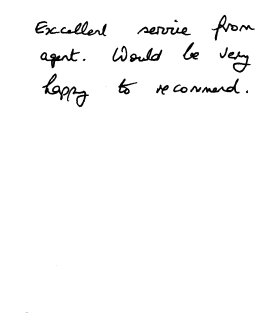 Excellent service from
agent. Would be very
happy to recommend.